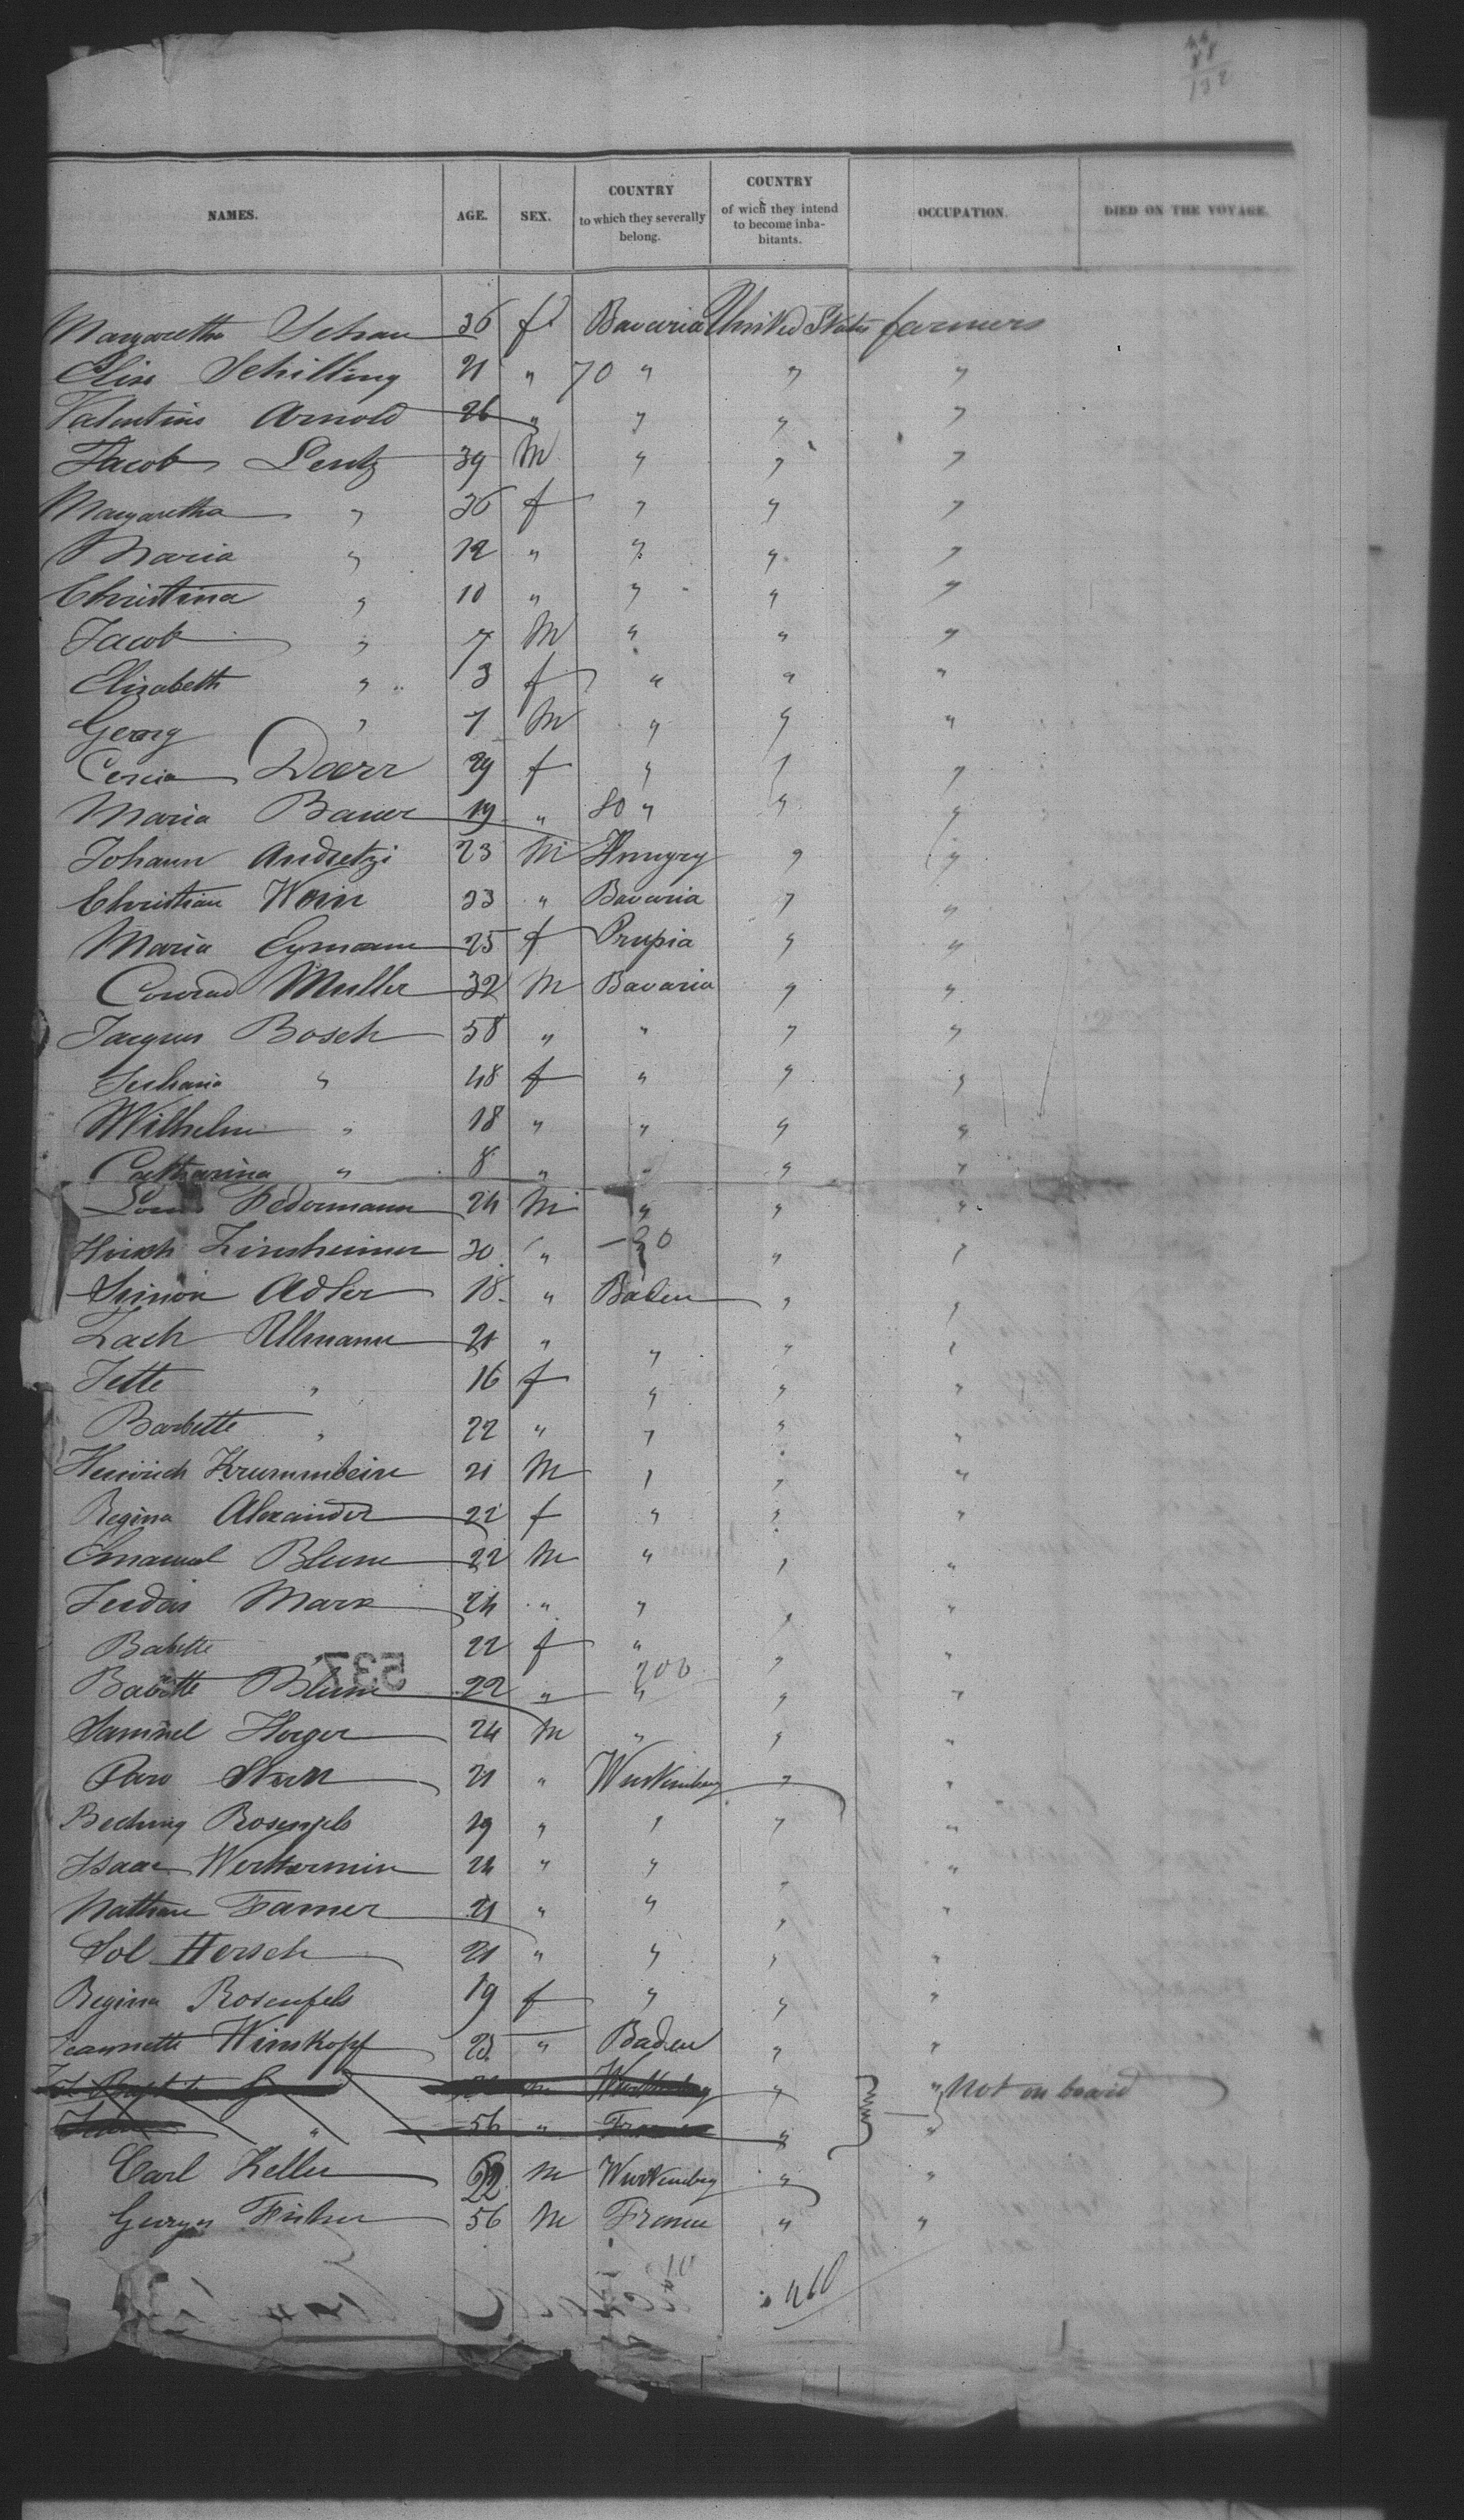 44
88
132
NAMES. AGE. SEX. COUNTRY to which they severally belong. COUNTRY of wich they intend to become inhabitants. OCCUPATION. DIED ON THE VOYAGE.
Margaretha Schau 36 f Bavaria United States farmers
Elise Schilling 21 " 70 " " "
Valentine Arnold 26 " " " "
Jacob Lentz 39 M " " "
Margaretha " 36 f " " "
Maria " 12 " " " "
Christina " 10 " " " "
Jacob " 7 M " " "
Elisabeth " 3 f " " "
Georg " 1 M " " "
Doerr 29 f " " "
Maria Bauer 19 " 80 " " "
Johann Andretzi 23 M Hungry " "
Christian Wein 23 " Bavaria " "
Maria Eymann 25 f Prussia " "
Conrad Muller 32 M Bavaria " "
Jacques Bosch 58 " " " "
" 48 f " " "
Wilhelm " 18 " " " "
Catharina " 8 " " " "
Louis Federmann 24 M " " "
Hirsch Zinsheimer 30 " " "
Simon Adler 18 " Baden " "
Zach Ullmann 21 " " " "
Jette " 16 f " " "
Barbette " 22 " " " "
Heinrich Krummbein 21 M " " "
Regina Alexander 22 f " " "
Emanuel Blum 22 M " " "
Marx 24 " " " "
Babette " 22 f " " "
537
Babette Blum 22 " 200 " " "
Samuel Horger 24 M " " "
21 " Wurtemberg " "
Rosenfels 19 " " " "
Isaac 24 " " " "
Nathan Farner 21 " " " "
Sol Hersch 21 " " " "
Regina Rosenfels 19 f " " "
Jeannette Winskopf 23 " Baden " "
Wurtemberg " " Not on board
" 56 " France " "
Carl Keller 22 M Wurtemberg " "
Georges 56 M France " "
10
460